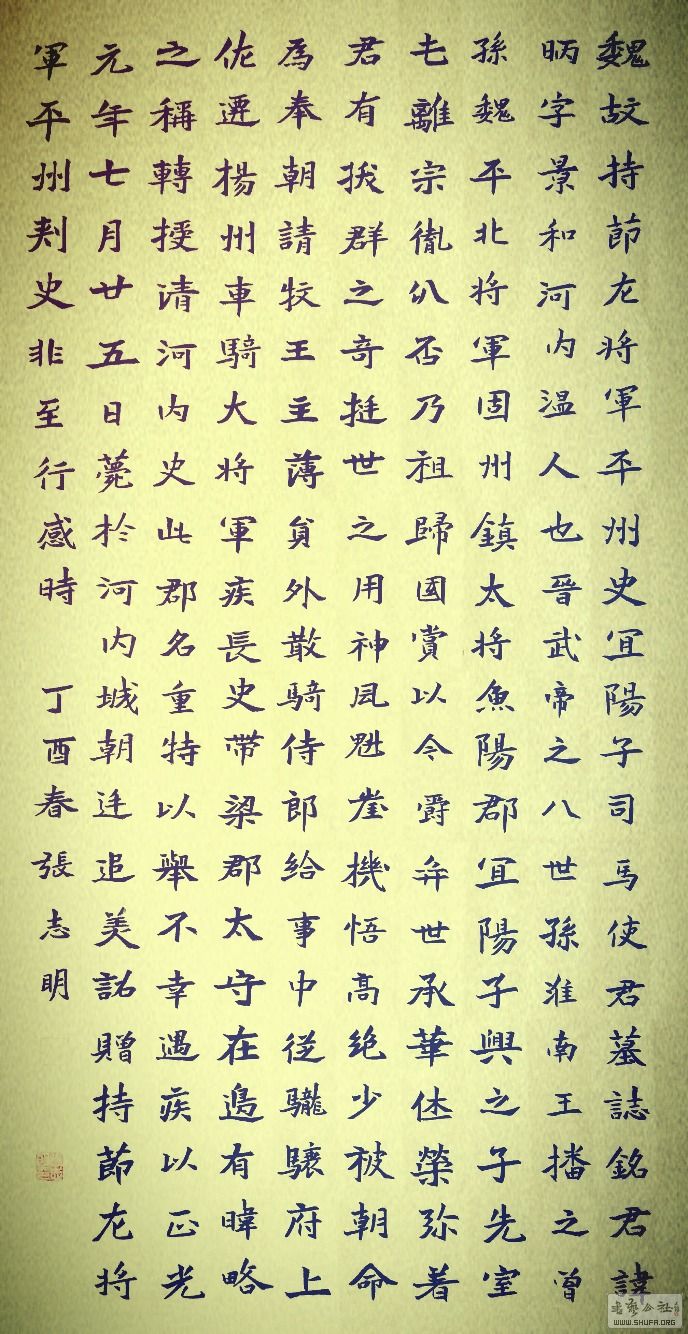 魏故持節左將軍平州史冝陽子司馬使君墓誌銘君諱
昞字景和河内温人也晉武帝之八世孫淮南王播之曾
孫魏平北將軍固州鎮太將魚陽郡冝陽子興之子先室
屯離宗胤分否乃祖歸國賞以今爵弈世承華休榮弥著
君有拔群之奇挺世之用神凬魁崖機悟高絶少被朝命
爲奉朝請牧王主薄貟外散騎侍郎給事中從驡驤府上
佐遷楊州車騎大將軍疾長史帶梁郡太守在邊有暐略
之稱轉授清河内史此郡名重特以舉不幸遇疾以正光
元年七月廿五日薨於河内城朝廷追美詔贈持節左將
軍平州刾史非至行感時 丁酉春張志明
WWW.SHUFA.ORG